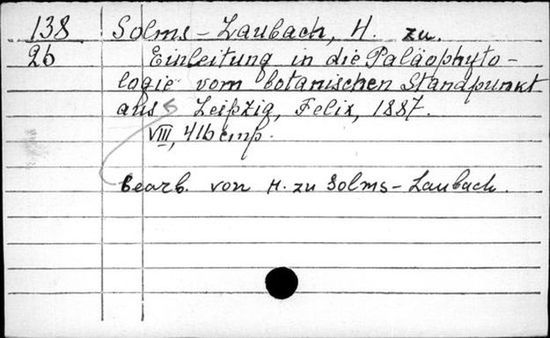 138 Solms-Laubach, H. zu.
26 Einleitung in die Paläophyto-
logie vom botanischen Standpunkt
aus Leipzig, Felix, 1887.
VIII, 416 стр.
bearb. von H. zu Solms-Laubach.